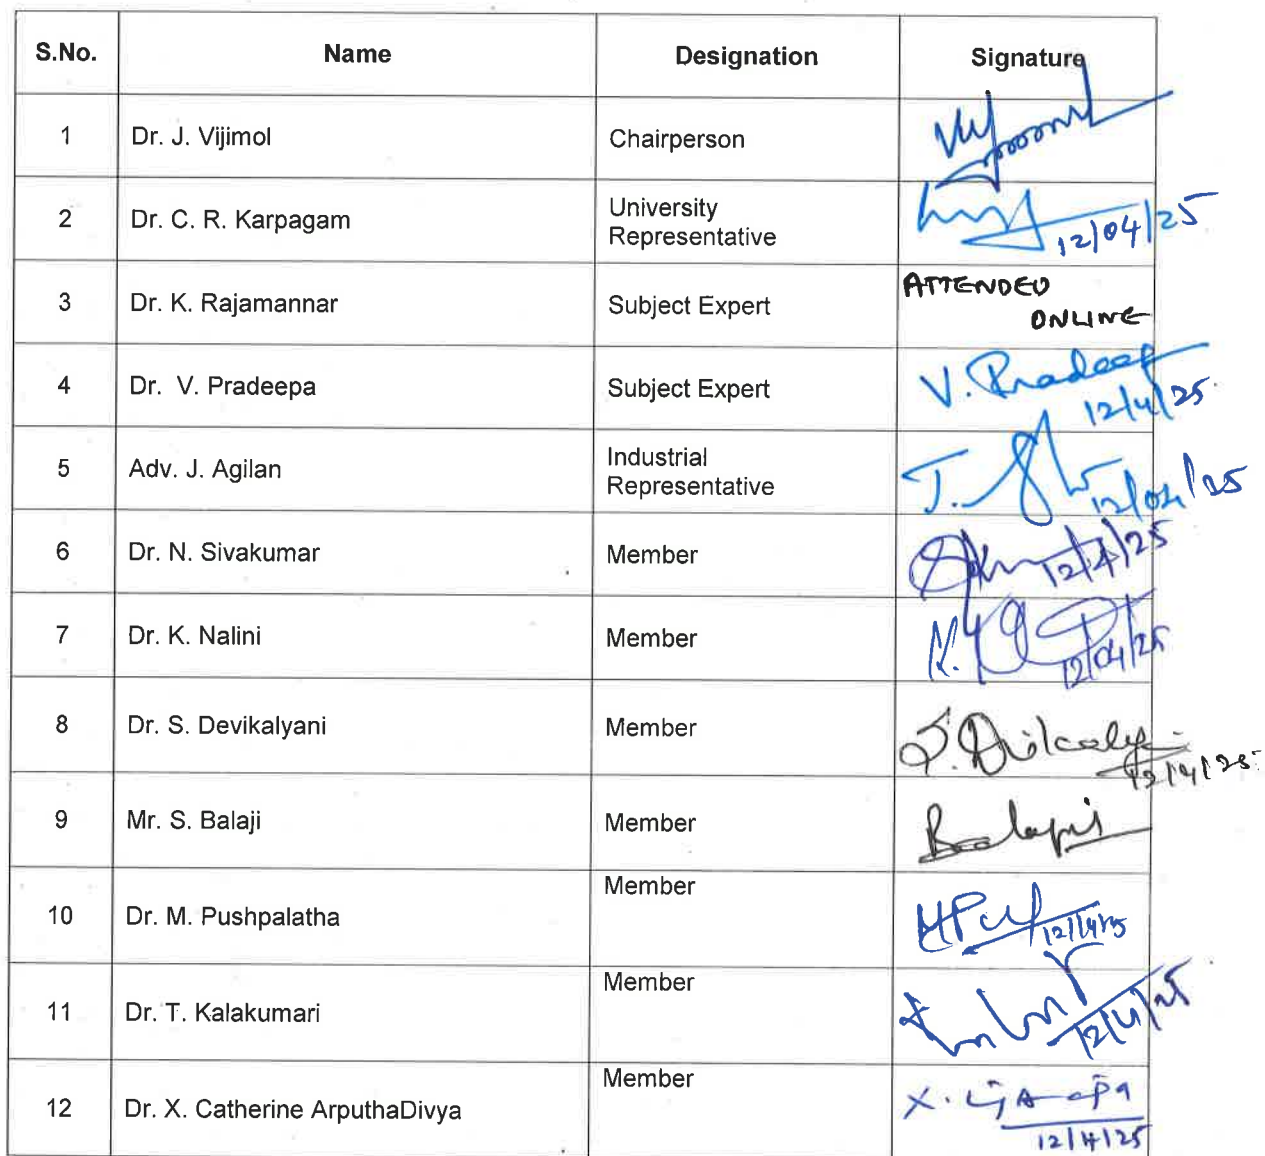 S.No. Name Designation Signature
1 Dr. J. Vijimol Chairperson
2 Dr. C. R. Karpagam University
Representative 12/04/25
3 Dr. K. Rajamannar Subject Expert ATTENDED
ONLINE
4 Dr. V. Pradeepa Subject Expert V. Pradeep
12/4/25
5 Adv. J. Agilan Industrial
Representative 12/04/25
6 Dr. N. Sivakumar Member 12/4/25
7 Dr. K. Nalini Member 12/04/25
8 Dr. S. Devikalyani Member
12/4/25
9 Mr. S. Balaji Member Balaji
10 Dr. M. Pushpalatha Member 12/4/25
11 Dr. T. Kalakumari Member 12/4/25
12 Dr. X. Catherine ArputhaDivya Member
12/4/25